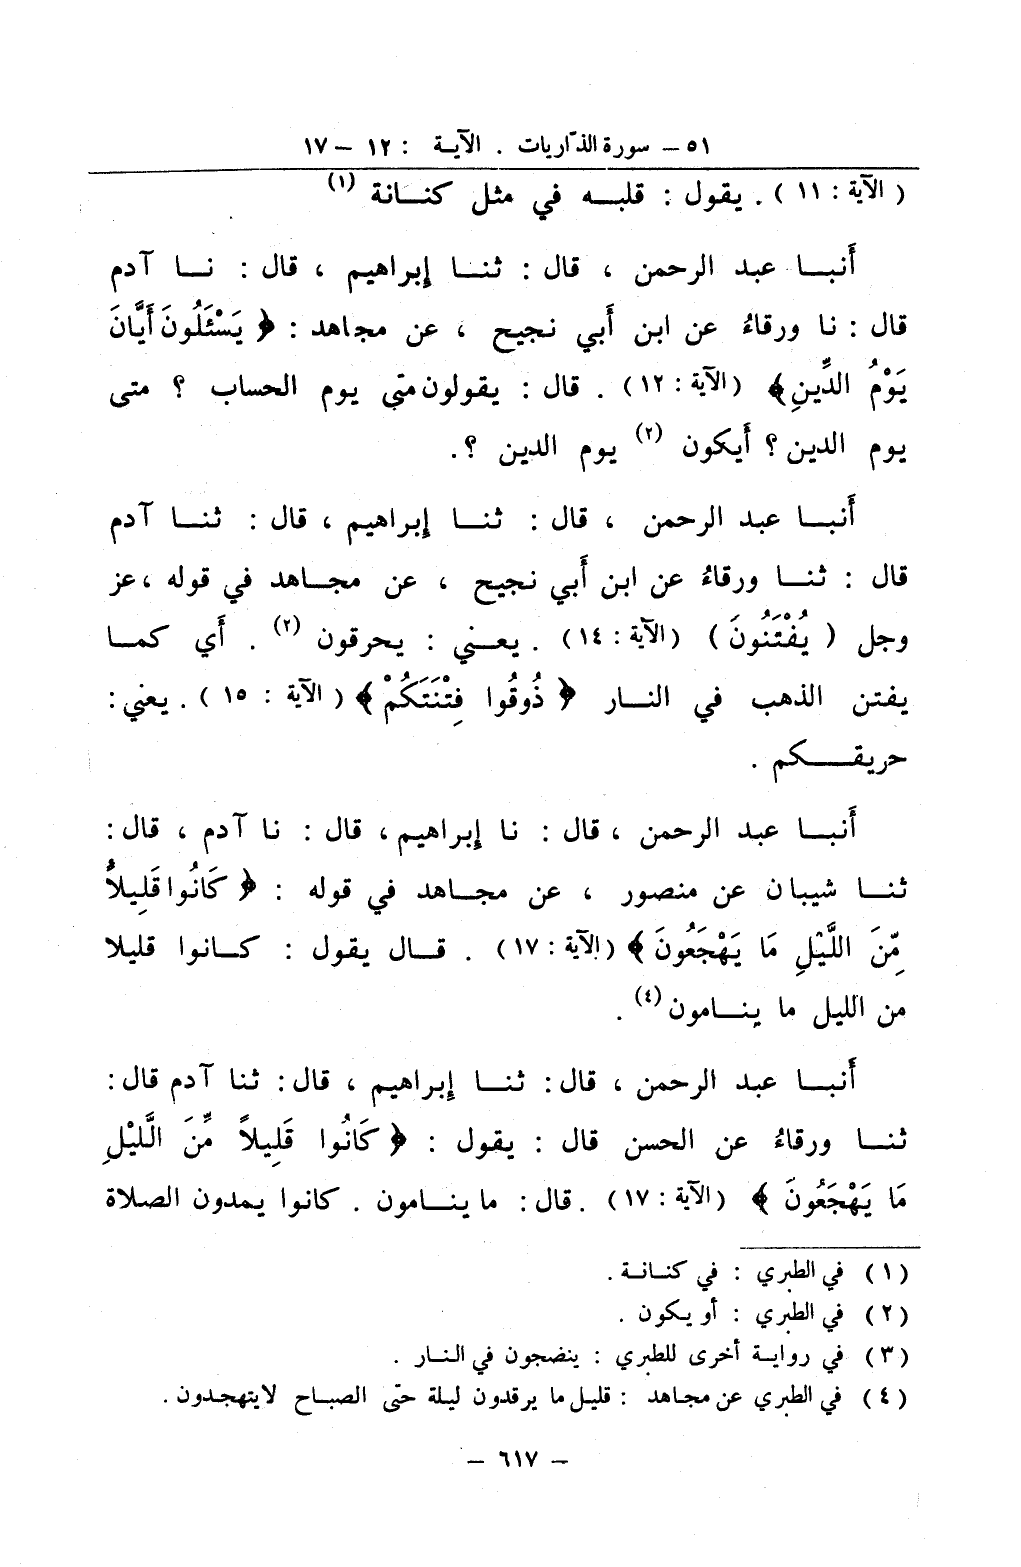 ٥١ – سورة الذّاريات . الآية : ١٢ – ١٧
( الآية : ١١ ) . يقول : قلبه في مثل كنانة (١)
أَنبا عبد الرحمن ، قال : ثنا إبراهيم ، قال : نا آدم
قال : نا ورقاءُ عن ابن أَبي نجيح ، عن مجاهد : ﴿ يَسْئَلُونَ أَيَّانَ
يَوْمُ الدِّينِ﴾ (الآية : ١٢) . قال : يقولون متى يوم الحساب ؟ متى
يوم الدين ؟ أَيكون (٢) يوم الدين ؟.
أَنبا عبد الرحمن ، قال : ثنا إبراهيم ، قال : ثنا آدم
قال : ثنا ورقاءُ عن ابن أَبي نجيح ، عن مجاهد في قوله ، عز
وجل ( يُفْتَنُونَ ) (الآية : ١٤) . يعني : يحرقون (٢) . أَي كما
يفتن الذهب في النار ﴿ ذُوقُوا فِتْنَتَكُمْ ﴾ ( الآية : ١٥ ) . يعني :
حريقكم .
أَنبا عبد الرحمن ، قال : نا إبراهيم ، قال : نا آدم ، قال :
ثنا شيبان عن منصور ، عن مجاهد في قوله : ﴿ كَانُوا قَلِيلاً
مِّنَ اللَّيْلِ مَا يَهْجَعُونَ ﴾ (الآية : ١٧) . قال يقول : كانوا قليلا
من الليل ما ينامون (٤) .
أَنبا عبد الرحمن ، قال : ثنا إبراهيم ، قال : ثنا آدم قال :
ثنا ورقاءُ عن الحسن قال : يقول : ﴿ كَانُوا قَلِيلاً مِّنَ الَّليْلِ
مَا يَهْجَعُونَ ﴾ (الآية : ١٧) . قال : ما ينامون . كانوا يمدون الصلاة
(١) في الطبري : في كنانة .
(٢) في الطبري : أو يكون .
(٣) في رواية أخرى للطبري : ينضجون في النار .
(٤) في الطبري عن مجاهد : قليل ما يرقدون ليلة حتّى الصباح لا يتهجدون .
– ٦١٧ –